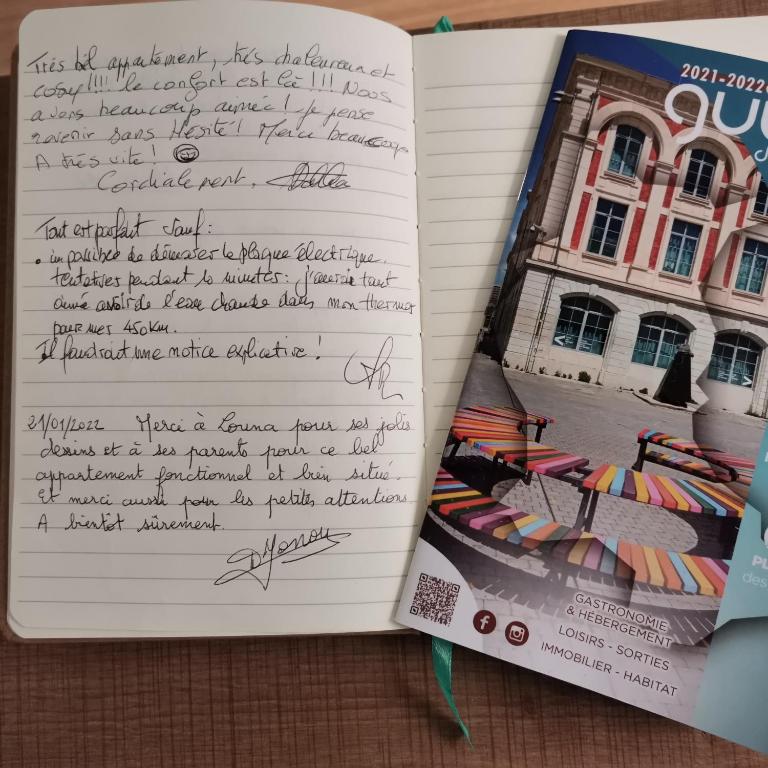 Très bel appartement, très chaleureux et
cosy!!!! le confort est là!!! Nous
avons beaucoup aimée! je pense
revenir sans Hésité! Merci beaucoup
A très vite!
Cordialement,
Tout est parfait sauf:
• impossible de démarrer la plaque électrique.
tentatives pendant 10 minutes: j'aurais tant
aimé avoir de l'eau chaude dans mon thermos
pour mes 450km.
Il faudrait une notice explicative!
21/01/2022 Merci à Louna pour ses jolis
dessins et à ses parents pour ce bel
appartement fonctionnel et bien situé.
Et merci aussi pour les petites attentions
A bientôt sûrement.
2021-2022
GASTRONOMIE
& HÉBERGEMENT
LOISIRS - SORTIES
IMMOBILIER - HABITAT
des